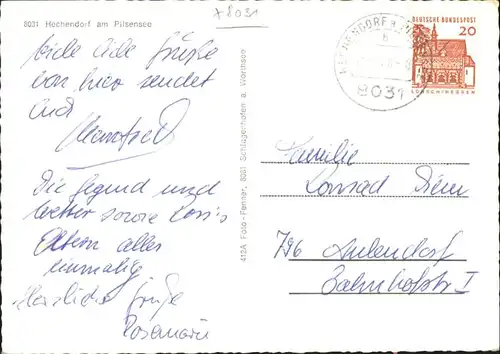 +8031
8031 Hechendorf am Pilsensee
viele liebe Grüße
von hier sendet
Euch
Manfred
Die Gegend und
Wetter sowie Rosi's
Eltern alles
einmalig.
Herzliche Grüße
Rosemarie
413A Foto-Fenner, 8081 Schlagenhofen a. Wörthsee
8031
DEUTSCHE BUNDESPOST
20
LORSCH/HESSEN
Familie
Konrad
796 Aulendorf
Bahnhofstr I